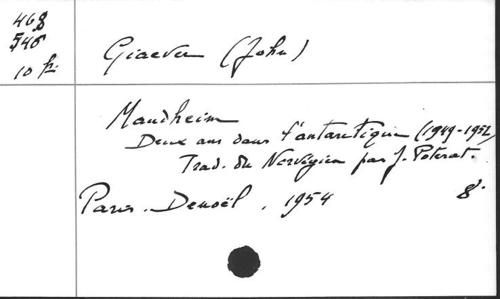 468
546
10 fr.
Giaever (John)
Maudheim
Deux ans dans l'antarctique (1949-1952)
Trad. du Norvégien par J. Poterat.
Paris. Denoël, 1954 8°